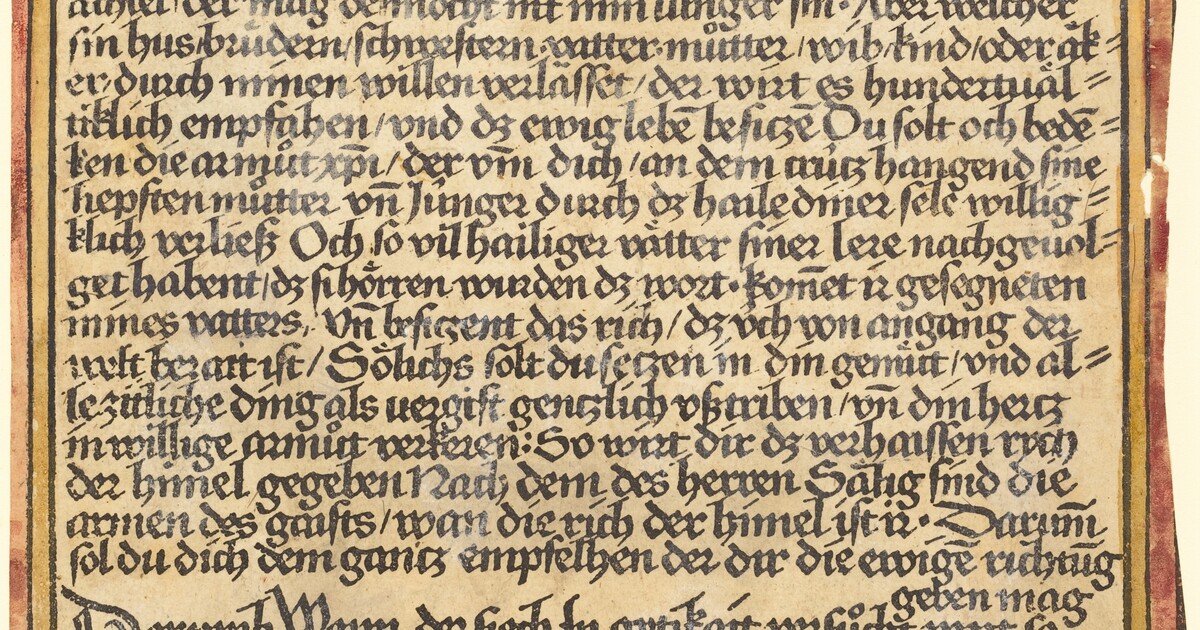 der mag nit min iünger sin · Aber welcher
sin hus / brůdern / schwestern · vatter · můtter / wib / kind / oder åk=
er / durch minen willen verlässet / der wirt es hundertuål=
tiklich empfahen / vnd dz ewig lebē besiczē Du solt och bedē=
ken die armůt xp̄i / der vm̄ dich / an dem crútz hangend sine
liepsten můtter vn̄ Jünger durch dz haile diner selē willig=
klich verließ Och so vil hailiger våtter siner lere nachgeuol=
get habent / dz si hörren wurden dz wort · kom̄et ir gesegneten
mines vatters / Vn̄ besiczent das rich / dz vch von angang der
welt berait ist / Sölichs solt du seczen in din gemůt / vnd al=
le zittliche ding als uergift genczlich vßtriben / vn̄ din hertz
in willige armůtt verkeren : So wirt dir dz verhaissen rych
der himel gegeben Nach dem des herren Sälig sind die
armen des gaists / wan die rich der himel ist ir · Darum̄
sol du dich dem gantz empfelhen der dir die ewigē richtūg
geben mag
Darumb Wann